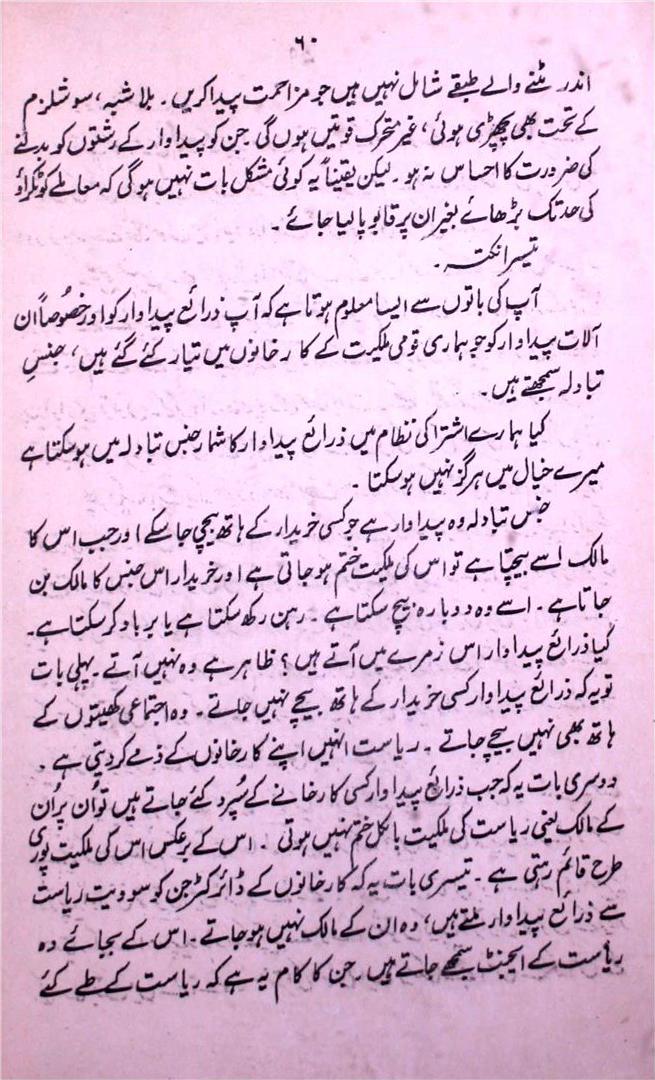 ۶۰
اندر مٹنے والے طبقے شامل نہیں ہیں جو مزاحمت پیدا کریں ۔ بلا شبہ، سوشلزم
کے تحت بھی پچھڑی ہوئی، غیر متحرک قوتیں ہوں گی جن کو پیداوار کے رشتوں کو بدلنے
کی ضرورت کا احساس نہ ہو ۔ لیکن یقیناً یہ کوئی مشکل بات نہیں ہوگی کہ معاملے کو ٹکراؤ
کی حد تک بڑھائے بغیر ان پر قابو پا لیا جائے ۔
تیسرا نکتہ ۔
آپ کی باتوں سے ایسا معلوم ہوتا ہے کہ آپ ذرائع پیداوار کو اور خصوصاً ان
آلات پیداوار کو جو ہماری قومی ملکیت کے کارخانوں میں تیار کئے گئے ہیں، جنسِ
تبادلہ سمجھتے ہیں ۔
کیا ہمارے اشتراکی نظام میں ذرائع پیداوار کا شمار جنس تبادلہ میں ہوسکتا ہے
میرے خیال میں ہرگز نہیں ہوسکتا ۔
جنس تبادلہ وہ پیداوار ہے جو کسی خریدار کے ہاتھ بیچی جا سکے اور جب اس کا
مالک اسے بیچتا ہے تو اس کی ملکیت ختم ہو جاتی ہے اور خریدار اس جنس کا مالک بن
جاتا ہے ۔ اسے وہ دوبارہ بیچ سکتا ہے ۔ رہن رکھ سکتا ہے یا برباد کر سکتا ہے ۔
کیا ذرائع پیداوار اس زمرے میں آتے ہیں ؟ ظاہر ہے وہ نہیں آتے ۔ پہلی بات
تو یہ کہ ذرائع پیداوار کسی خریدار کے ہاتھ بیچے نہیں جاتے ۔ وہ اجتماعی کھیتوں کے
ہاتھ بھی نہیں بیچے جاتے ۔ ریاست انہیں اپنے کارخانوں کے ذمے کر دیتی ہے ۔
دوسری بات یہ کہ جب ذرائع پیداوار کسی کارخانے کے سُپرد کئے جاتے ہیں تو اُن پر اُن
کے مالک یعنی ریاست کی ملکیت بالکل ختم نہیں ہوتی ۔ اس کے برعکس اس کی ملکیت پوری
طرح قائم رہتی ہے ۔ تیسری بات یہ کہ کارخانوں کے ڈائرکٹر جن کو سوویت ریاست
سے ذرائع پیداوار ملتے ہیں، وہ ان کے مالک نہیں ہو جاتے ۔ اس کے بجائے وہ
ریاست کے ایجنٹ سمجھے جاتے ہیں جن کا کام یہ ہے کہ ریاست کے طے کئے